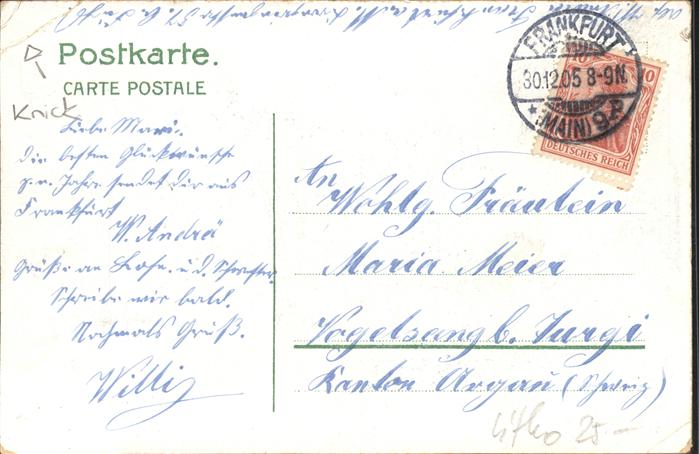 Postkarte.
CARTE POSTALE
Knick
FRANKFURT
30.12.05 8-9N.
(MAIN) 9
10
DEUTSCHES REICH
Liebe Mari.
die besten Glückwünsche
z. n. Jahre sendet dir aus
Frankfurt
W. Andrä
Grüße an u. d. Schwester
Schreibe mir bald.
Nochmals Gruß.
Willi
An
Wohlg. Fräulein
Maria Meier
Vogelsang b. Turgi
Kanton Argau (Schweiz)
Litho 25-